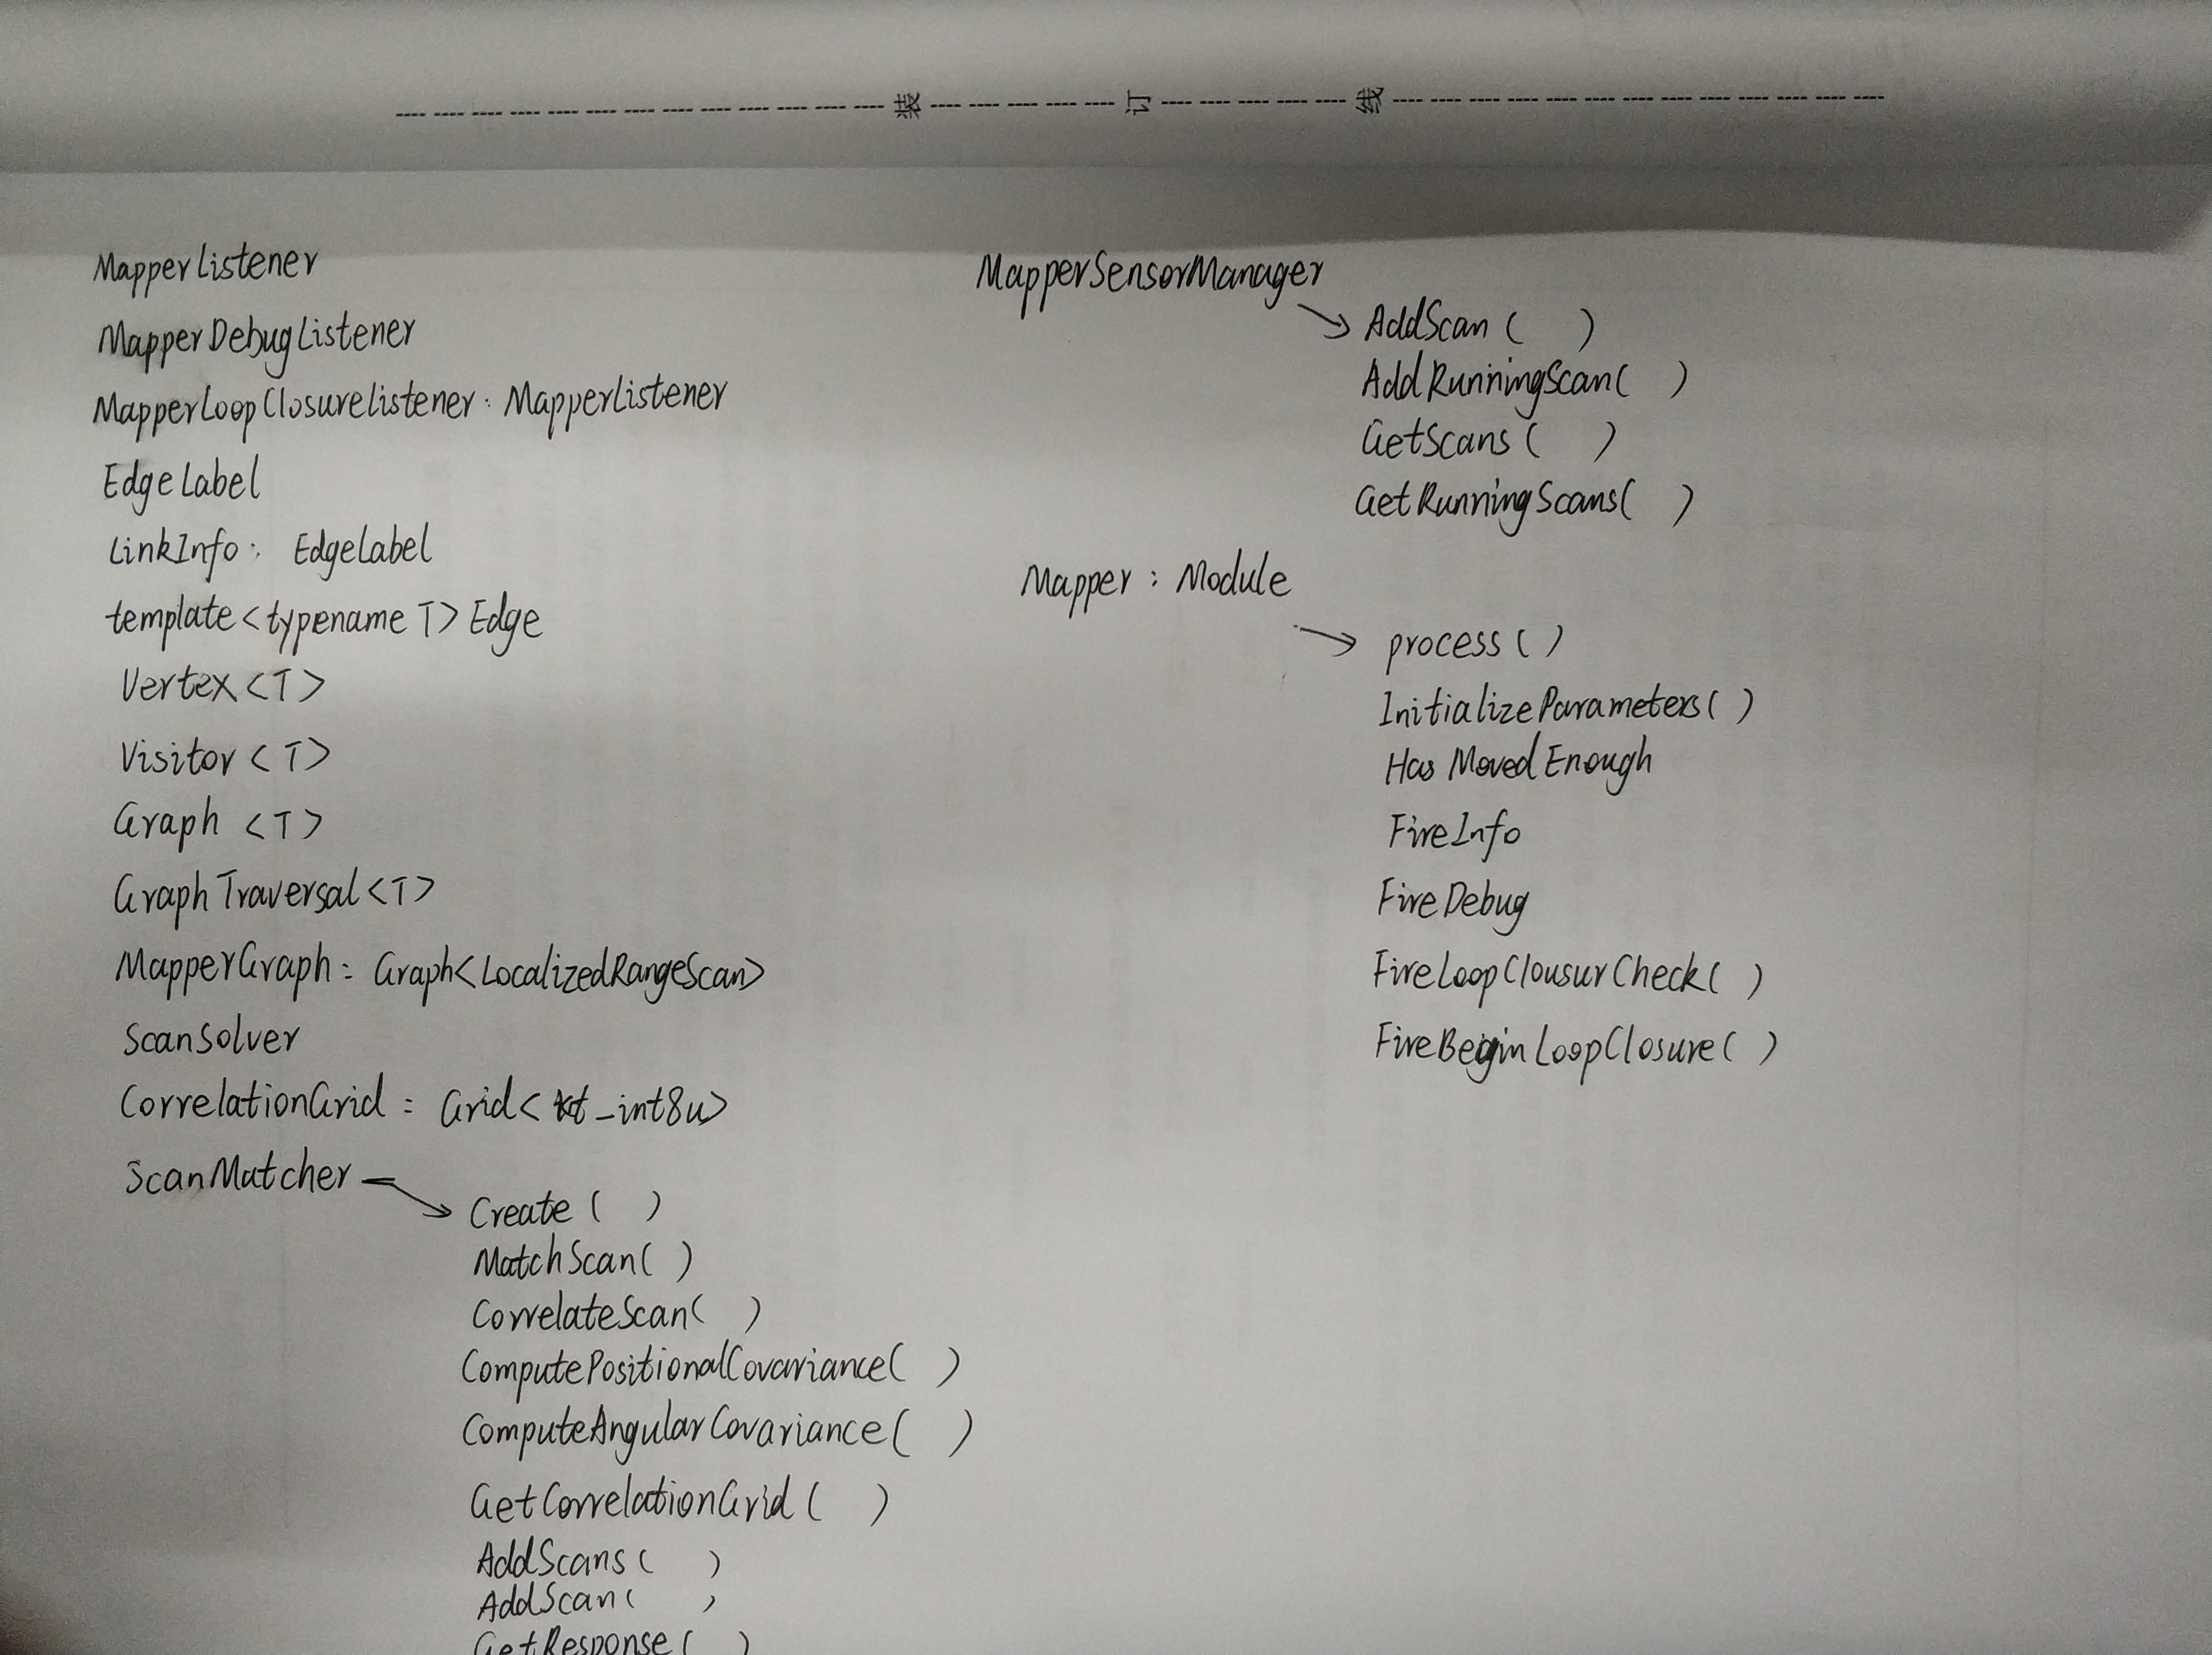 装 订 线
MapperListener
MapperDebugListener
MapperLoopClosureListener: MapperListener
EdgeLabel
LinkInfo: EdgeLabel
template<typename T> Edge
Vertex<T>
Visitor<T>
Graph <T>
GraphTraversal<T>
MapperGraph: Graph<LocalizedRangeScan>
ScanSolver
CorrelationGrid: Grid<kt_int8u>
ScanMatcher →
Create( )
MatchScan( )
CorrelateScan( )
ComputePositionalCovariance( )
ComputeAngularCovariance( )
GetCorrelationGrid( )
AddScans( )
AddScan( )
GetResponse( )
MapperSensorManager
→ AddScan( )
AddRunningScan( )
GetScans( )
GetRunningScans( )
Mapper: Module
→ process( )
InitializeParameters( )
HasMovedEnough
FireInfo
FireDebug
FireLoopClousurCheck( )
FireBeginLoopClosure( )